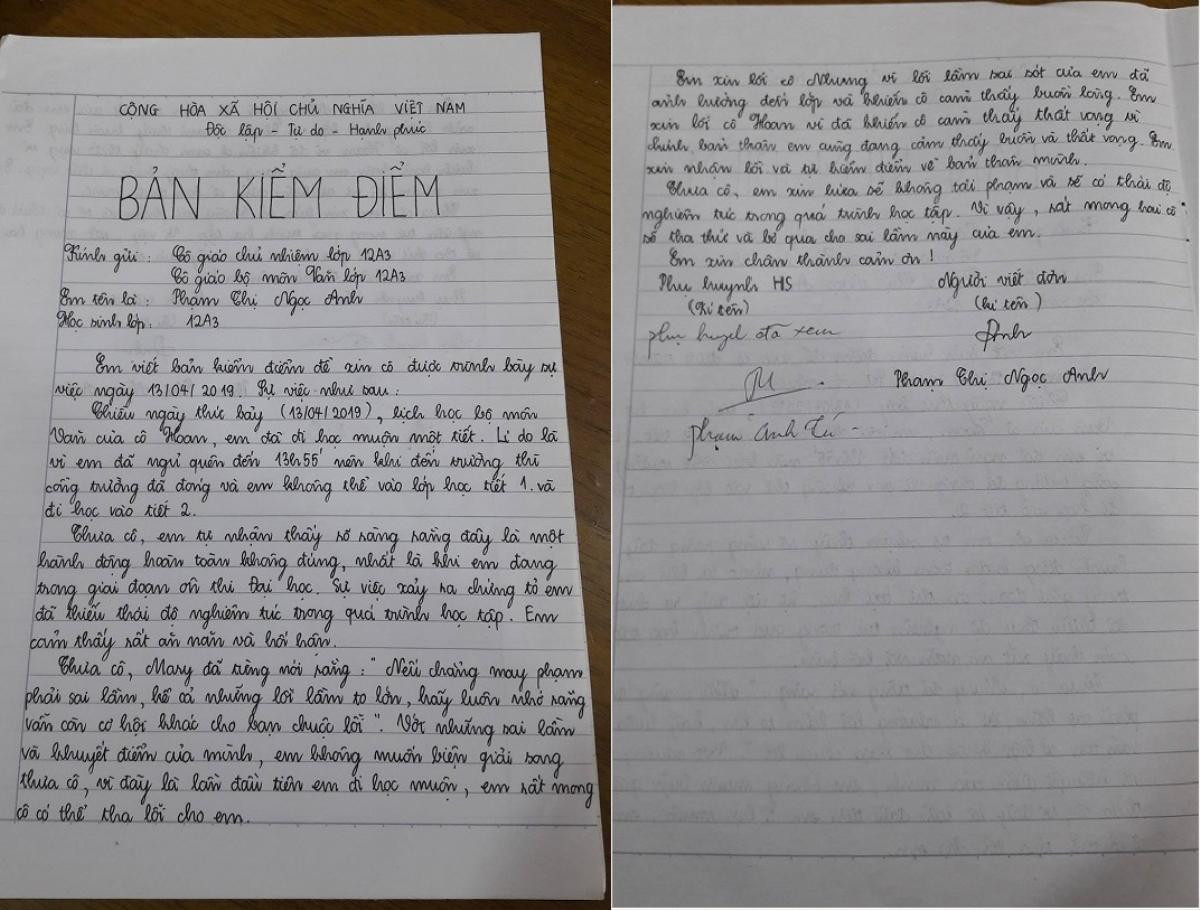 CỘNG HÒA XÃ HỘI CHỦ NGHĨA VIỆT NAM
Độc lập - Tự do - Hạnh phúc
BẢN KIỂM ĐIỂM
Kính gửi : Cô giáo chủ nhiệm lớp 12A3
Cô giáo bộ môn Văn lớp 12A3
Em tên là : Phạm Thị Ngọc Anh
Học sinh lớp : 12A3
Em viết bản kiểm điểm để xin cô được trình bày sự
việc ngày 13/04/2019. Sự việc như sau :
Chiều ngày thứ bảy (13/04/2019), lịch học bộ môn
Văn của cô Hoan, em đã đi học muộn một tiết. Lí do là
vì em đã ngủ quên đến 13h55' nên khi đến trường thì
cổng trường đã đóng và em không thể vào lớp học tiết 1. và
đi học vào tiết 2.
Thưa cô, em tự nhận thấy rõ ràng rằng đây là một
hành động hoàn toàn không đúng, nhất là khi em đang
trong giai đoạn ôn thi Đại học. Sự việc xảy ra chứng tỏ em
đã thiếu thái độ nghiêm túc trong quá trình học tập. Em
cảm thấy rất ăn năn và hối hận.
Thưa cô, Mary đã từng nói rằng : " Nếu chẳng may phạm
phải sai lầm, kể cả những lỗi lầm to lớn, hãy luôn nhớ rằng
vẫn còn cơ hội khác cho bạn chuộc lỗi ". Với những sai lầm
và khuyết điểm của mình, em không muốn biện giải song
thưa cô, vì đây là lần đầu tiên em đi học muộn, em rất mong
cô có thể tha lỗi cho em.
Em xin lỗi cô Nhung vì lỗi lầm sai sót của em đã
ảnh hưởng đến lớp và khiến cô cảm thấy buồn lòng. Em
xin lỗi cô Hoan vì đã khiến cô cảm thấy thất vọng vì
chính bản thân em cũng đang cảm thấy buồn và thất vọng. Em
xin nhận lỗi và tự kiểm điểm về bản thân mình.
Thưa cô, em xin hứa sẽ không tái phạm và sẽ có thái độ
nghiêm túc trong quá trình học tập. Vì vậy, rất mong hai cô
sẽ tha thứ và bỏ qua cho sai lầm này của em.
Em xin chân thành cảm ơn !
Phụ huynh HS Người viết đơn
(Kí tên) (kí tên)
phụ huynh đã xem Anh
Phạm Thị Ngọc Anh
Phạm Anh Tú